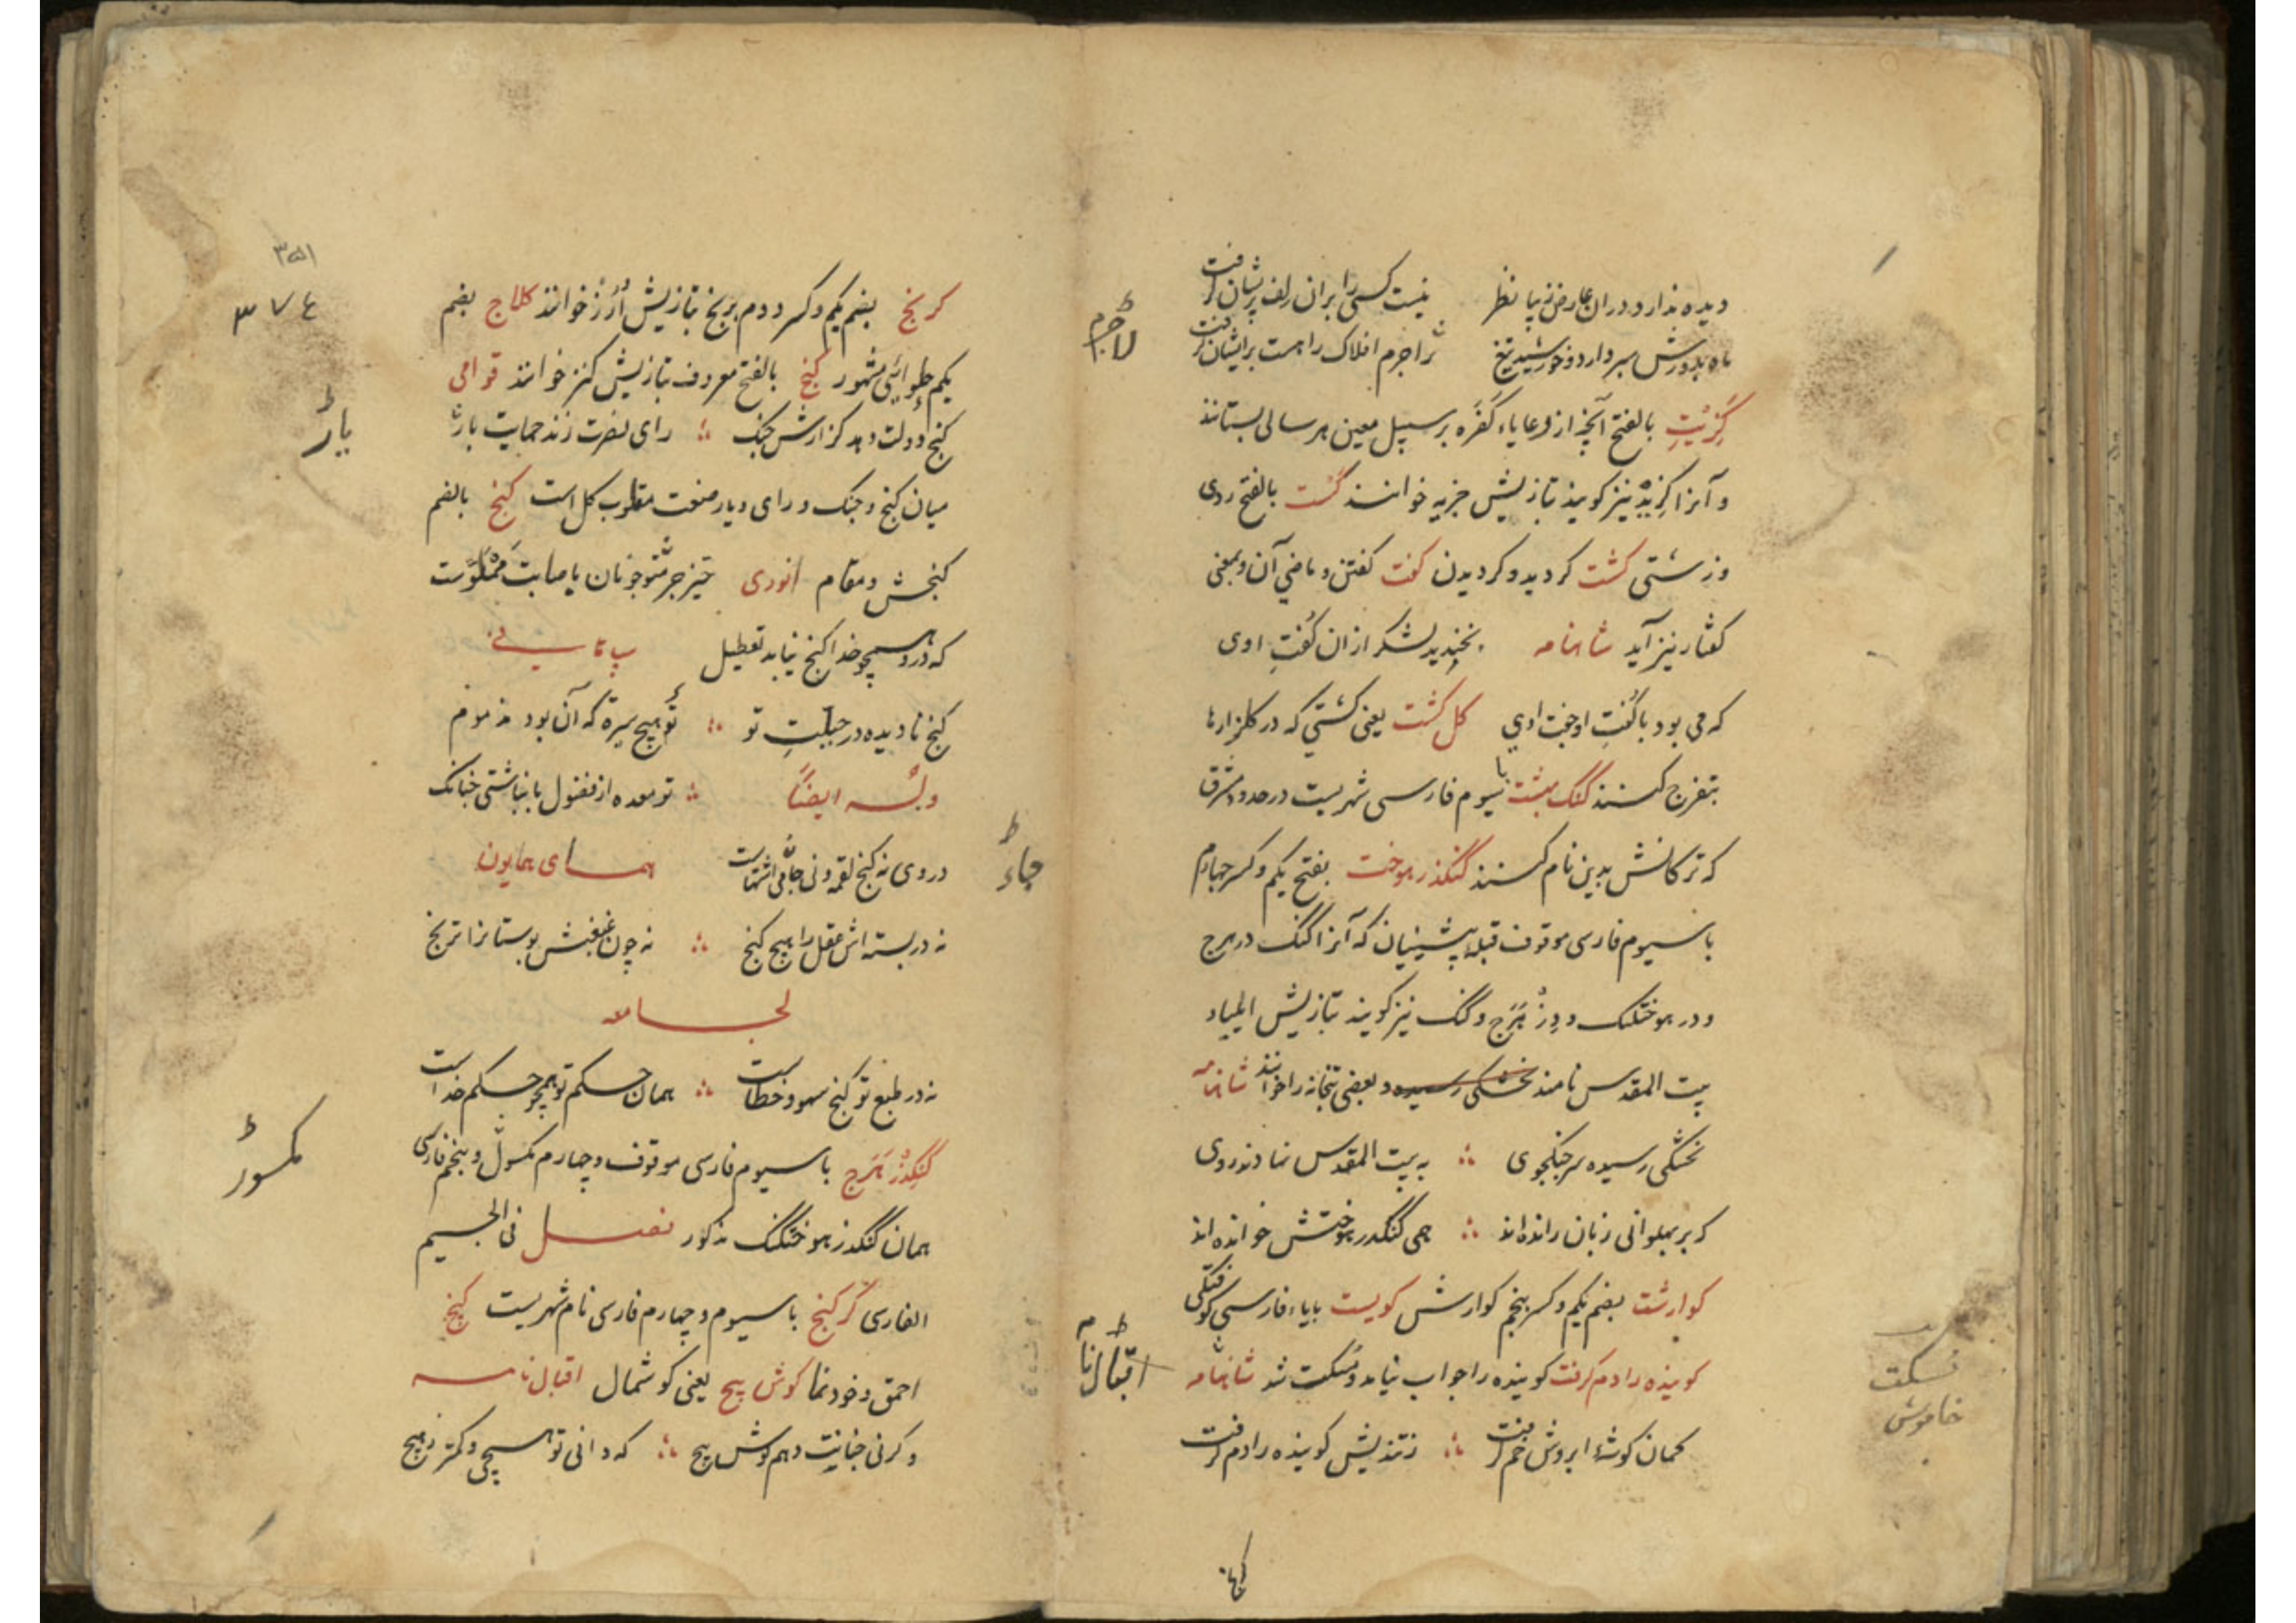 دیده ندارد دران عارض زیبا نظر نیست کسی را بران زلف پریشان گرفت
ماه بدورش سپر دارد و خورشید تیغ لاجرم افلاک را هست برایشان گرفت
لاجرم
گزیت بالفتح آنچه از رعایاء کفره بر سبیل معین هر سالی بستانند
و آنرا گزید نیز کویند بتازیش جزیه خوانند گست بالفتح ردی
و زشتی گشت کردید و کردیدن گفت گفتن و ماضی آن و بمعنی
کفتار نیز آید شاهنامه بخندید لشکر ازان گفت اوی
که می بود با گفت او جفت اوی کل گشت یعنی گشتی که در کلزارها
بتفرج کنند گنگ بهشت با سیوم فارسی شهریست در حدود مشرق
که ترکانش بدین نام کنند گنگذر هوخت بفتح یکم و کسر چهارم
با سیوم فارسی موقوف قبله پیشینیان که آنرا گنگ درهرج
و در هوختکنک و دز هرج و گنگ نیز کویند بتازیش ایلیاء
بیت المقدس نامند بخشکی رسیده و بعضی بتخانه را خوانند شاهنامه
بخشکی رسیده سر جنکجوی به بیت المقدس نهادند روی
که بر پهلوانی زبان راندهاند همی گنگدر هوختش خواندهاند
کوارشت بضم یکم و کسر پنجم کوارش کوپست بابیاء فارسی کوفتگی
کوینده را دم گرفت کوینده را جواب نیامد و مسکت شد شاهنامه
اقبال نام
مسکت
خاموش
کمان کوشهٔ ابروش خم گرفت ز تندیش کوینده را دم گرفت
۳۵۱
۳۷۴
کرنج بضم یکم و کسر دوم برنج بتازیش ارز خوانند کلاج بضم
یکم حلوائی مشهور گنج بالفتح معروف بتازیش کنز خوانند قوامی
گنج دولت دهد کزارش جنک رای نصرت زند حمایت یار
یار
میان گنج و جنک و رای و یار صنعت مقلوب کل است کنج بالضم
کنجش و مقام انوری
که درو هیچو خدا کنج نیابد تعطیل
کنج نادیده در جبلت تو تو هیچ سیرة که آن بود مذموم
وله ایضاً تو معده از فضول بانباشتی چنانک
در وی نه کنج لقمه و نی جای اشتهاست همای همایون
جاء
نه در بسته اش عقل را هیچ کنج نه چون غبغبش بوستانرا ترنج
لجامعه
نه در طبع تو کنج سهو و خطاست همان حکم تو همچو حکم خداست
گنگدز هرج با سیوم فارسی موقوف و چهارم مکسور و پنجم فارسی
مکسور
همان گنگدز هوختگنگ مذکور فصل فی الجیم
الفارسی گرکنج با سیوم و چهارم فارسی نام شهریست کیج
احمق و خودنما کوش پیچ یعنی کوشمال اقبال نامه
و کرنی چنانت دهم کوش پیچ که دانی تو هیچی و کمتر ز هیچ